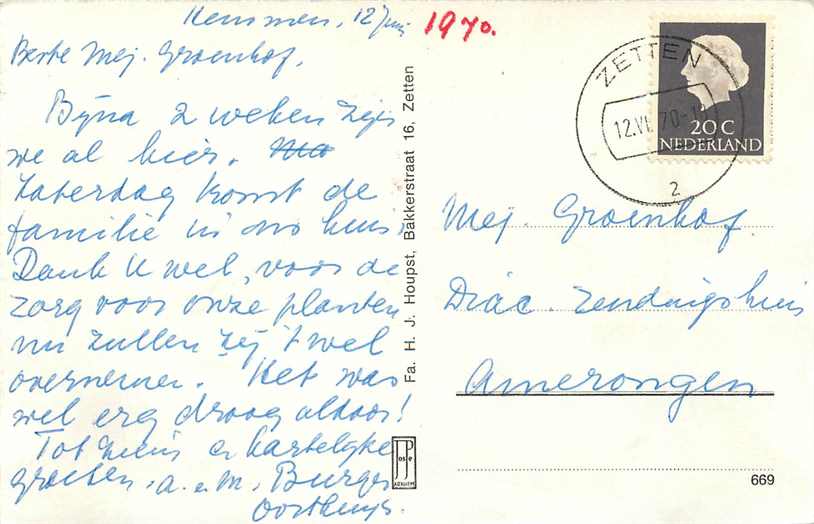 12 juni
1970.
Beste Mej. Groenhof,
Bijna 2 weken zijn
we al hier.
Zaterdag komt de
familie in ons huis.
Dank U wel, voor de
zorg voor onze planten
nu zullen zij 't wel
overnemen. Het was
wel erg droog aldoor!
Tot ziens en hartelijke
groeten, a. en M. Burger
Oosthuys.
Fa. H. J. Houpst, Bakkerstraat 16, Zetten
JosPé
ARNHEM
ZETTEN
12.VI.70-1
2
20 C
NEDERLAND
Mej. Groenhof
Diac. Zendingshuis
Amerongen
669